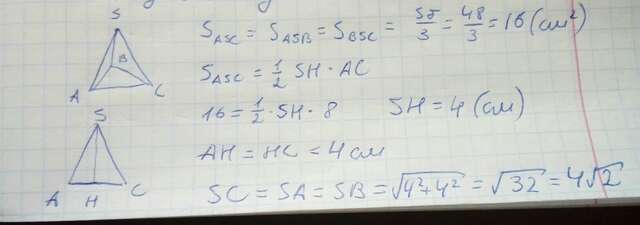 S
B
A
C
S_ASC = S_ASB = S_BSC = Sб/3 = 48/3 = 16 (см²)
S_ASC = 1/2 SH · AC
16 = 1/2 · SH · 8 SH = 4 (см)
S
A
H
C
AH = HC = 4 см
SC = SA = SB = √4²+4² = √32 = 4√2